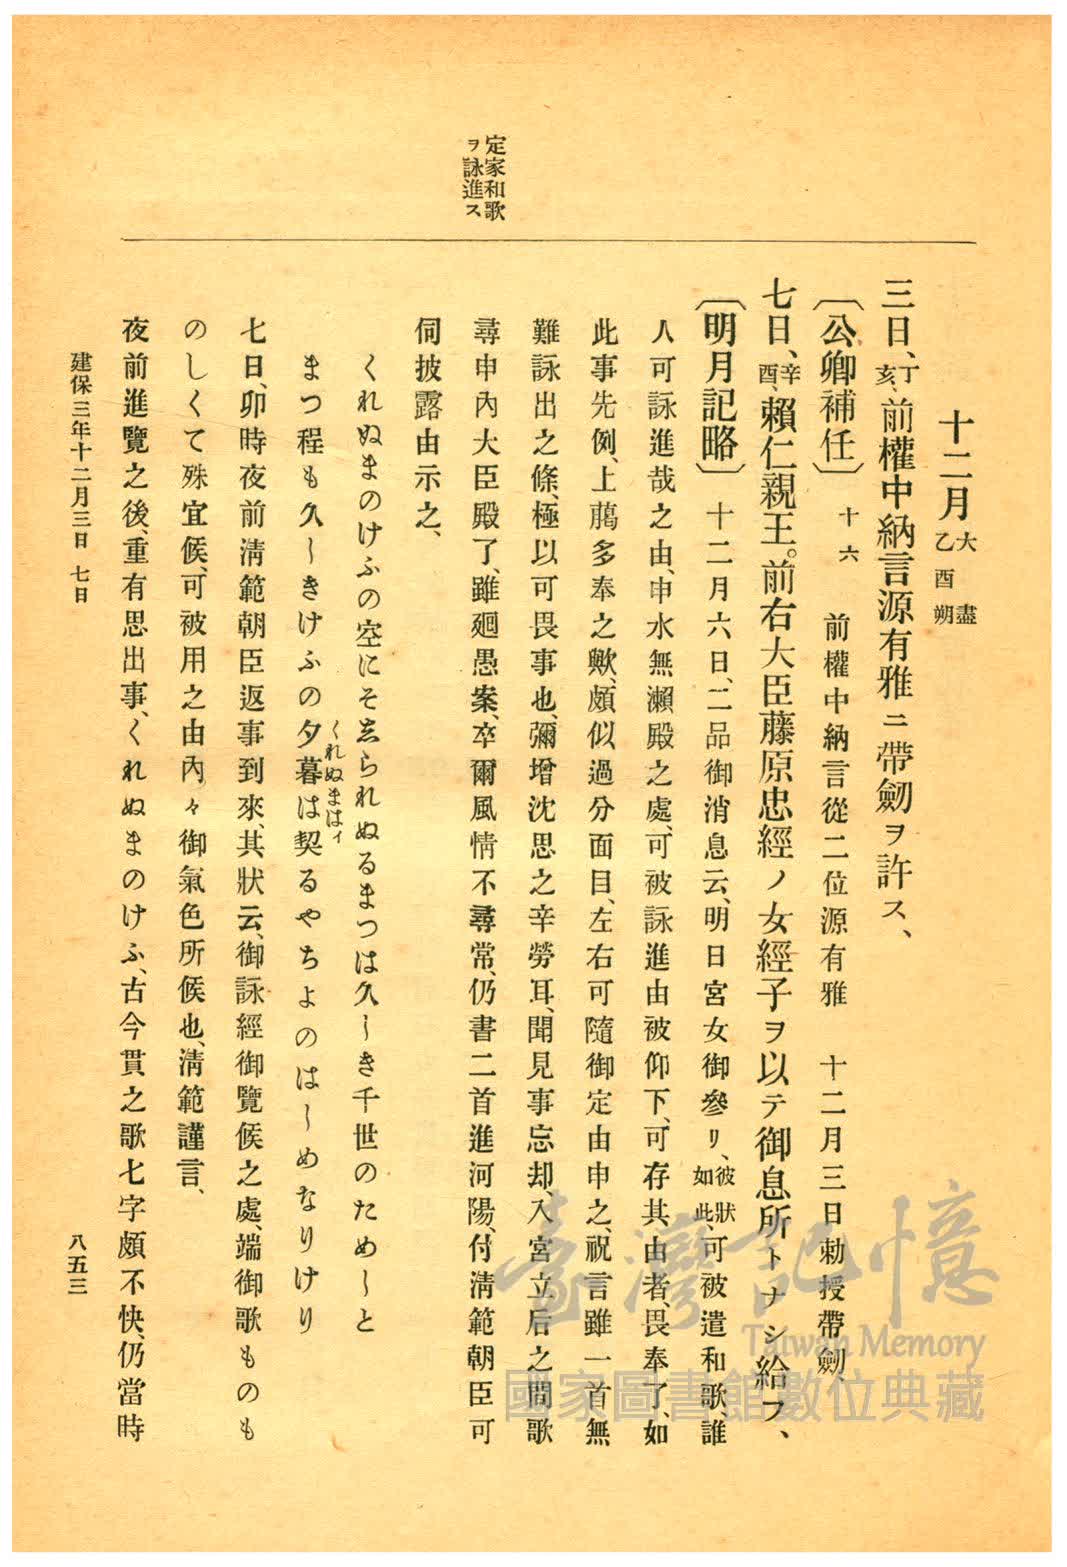 定家和歌
ヲ詠進ス
十二月大盡乙酉朔
三日、丁亥、前權中納言源有雅ニ帶劒ヲ許ス、
〔公卿補任〕十六 前權中納言從二位源有雅 十二月三日勅授帶劒、
七日、辛酉、賴仁親王。前右大臣藤原忠經ノ女經子ヲ以テ御息所トナシ給フ、
〔明月記略〕十二月六日、二品御消息云、明日宮女御參リ、彼狀如此、可被遣和歌、誰
人可詠進哉之由、申水無瀨殿之處、可被詠進由被仰下、可存其由者、畏奉了、如
此事先例、上﨟多奉之歟、頗似過分面目、左右可隨御定由申之、祝言雖一首無
難詠出之條、極以可畏事也、彌增沈思之辛勞耳、聞見事忘却、入宮立后之間歌
尋申內大臣殿了、雖廻愚案、卒爾風情不尋常、仍書二首進河陽、付淸範朝臣可
伺披露由示之、
くれぬまのけふの空にそ志られぬるまつは久しき千世のためしと
まつ程も久しきけふの夕暮は契るやちよのはしめなりけり
くれぬまはィ
七日、卯時夜前淸範朝臣返事到來、其狀云、御詠經御覽候之處、端御歌ものも
のしくて殊宜候、可被用之由內々御氣色所候也、淸範謹言、
夜前進覽之後、重有思出事、くれぬまのけふ、古今貫之歌七字頗不快、仍當時
建保三年十二月三日 七日
八五三
臺灣記憶
Taiwan Memory
國家圖書館數位典藏